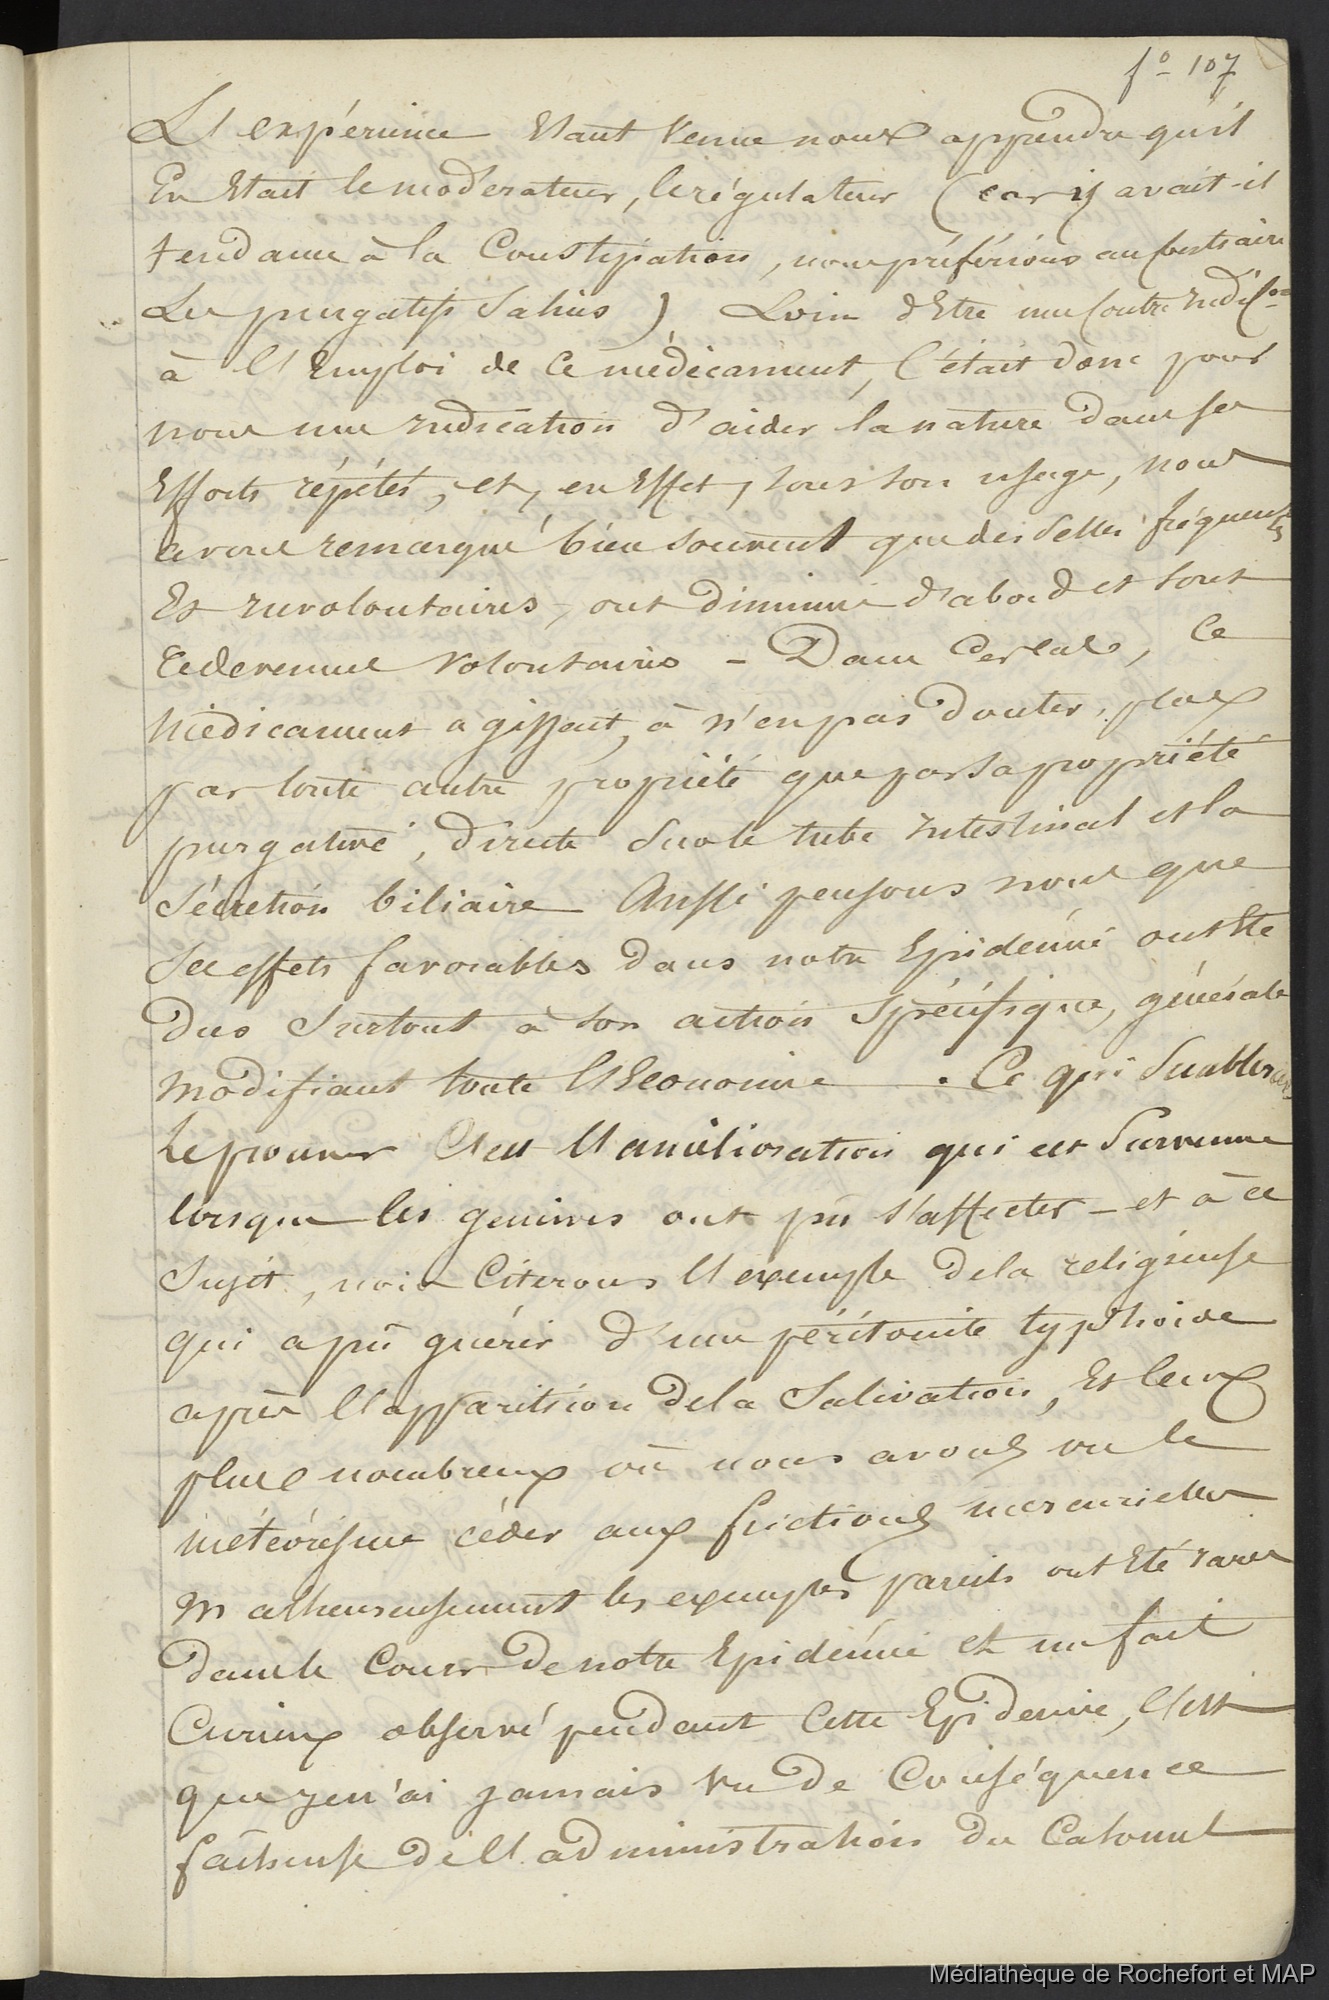 fo 107
L'expérience étant venue nous apprendre qu'il
En était le modérateur, le régulateur (car y avait-il
tendance à la Constipation, nous préférions au contraire
Les purgatifs Salins) Loin d'Etre une Contre Indicon
à l'Emploi de Ce médicament, C'était donc pour
nous une Indication d'aider la nature dans ses
Efforts répétés, et, en Effet, sous son usage, nous
avons remarqué bien souvent que des Selles fréquentes
Et Involontaires, ont diminué d'abord et sont
Redevenues Volontaires - Dans Ces Cas, Ce
Médicament agissait, à n'en pas douter, plus
par toute autre propriété que par sa propriété
purgative, directe sur le tube Intestinal et la
Sécrétion biliaire Aussi pensons nous que
Ses effets favorables dans notre Epidémie ont Eté
Dus Surtout à son action Spécifique, générale
Modifiant toute l'Economie. Ce qui Semblerait
Le prouver C'est l'amélioration qui est Survenue
lorsque les gencives ont pû s'affecter - et à ce
Sujet, nous Citerons l'exemple de la religieuse
qui a pû guérir d'une péritonite typhoide
après l'apparition de la Salivation, Et Ceux
plus nombreux où nous avons vu le
météorisme céder aux frictions mercurielles
Malheureusement les exemples pareils ont Eté rares
dans le Cours de notre Epidémie et un fait
Curieux observé pendant Cette Epidemie, C'est
que je n'ai jamais Vu de Conséquence
fâcheuse de l'administration du Calomel
Médiathèque de Rochefort et MAP